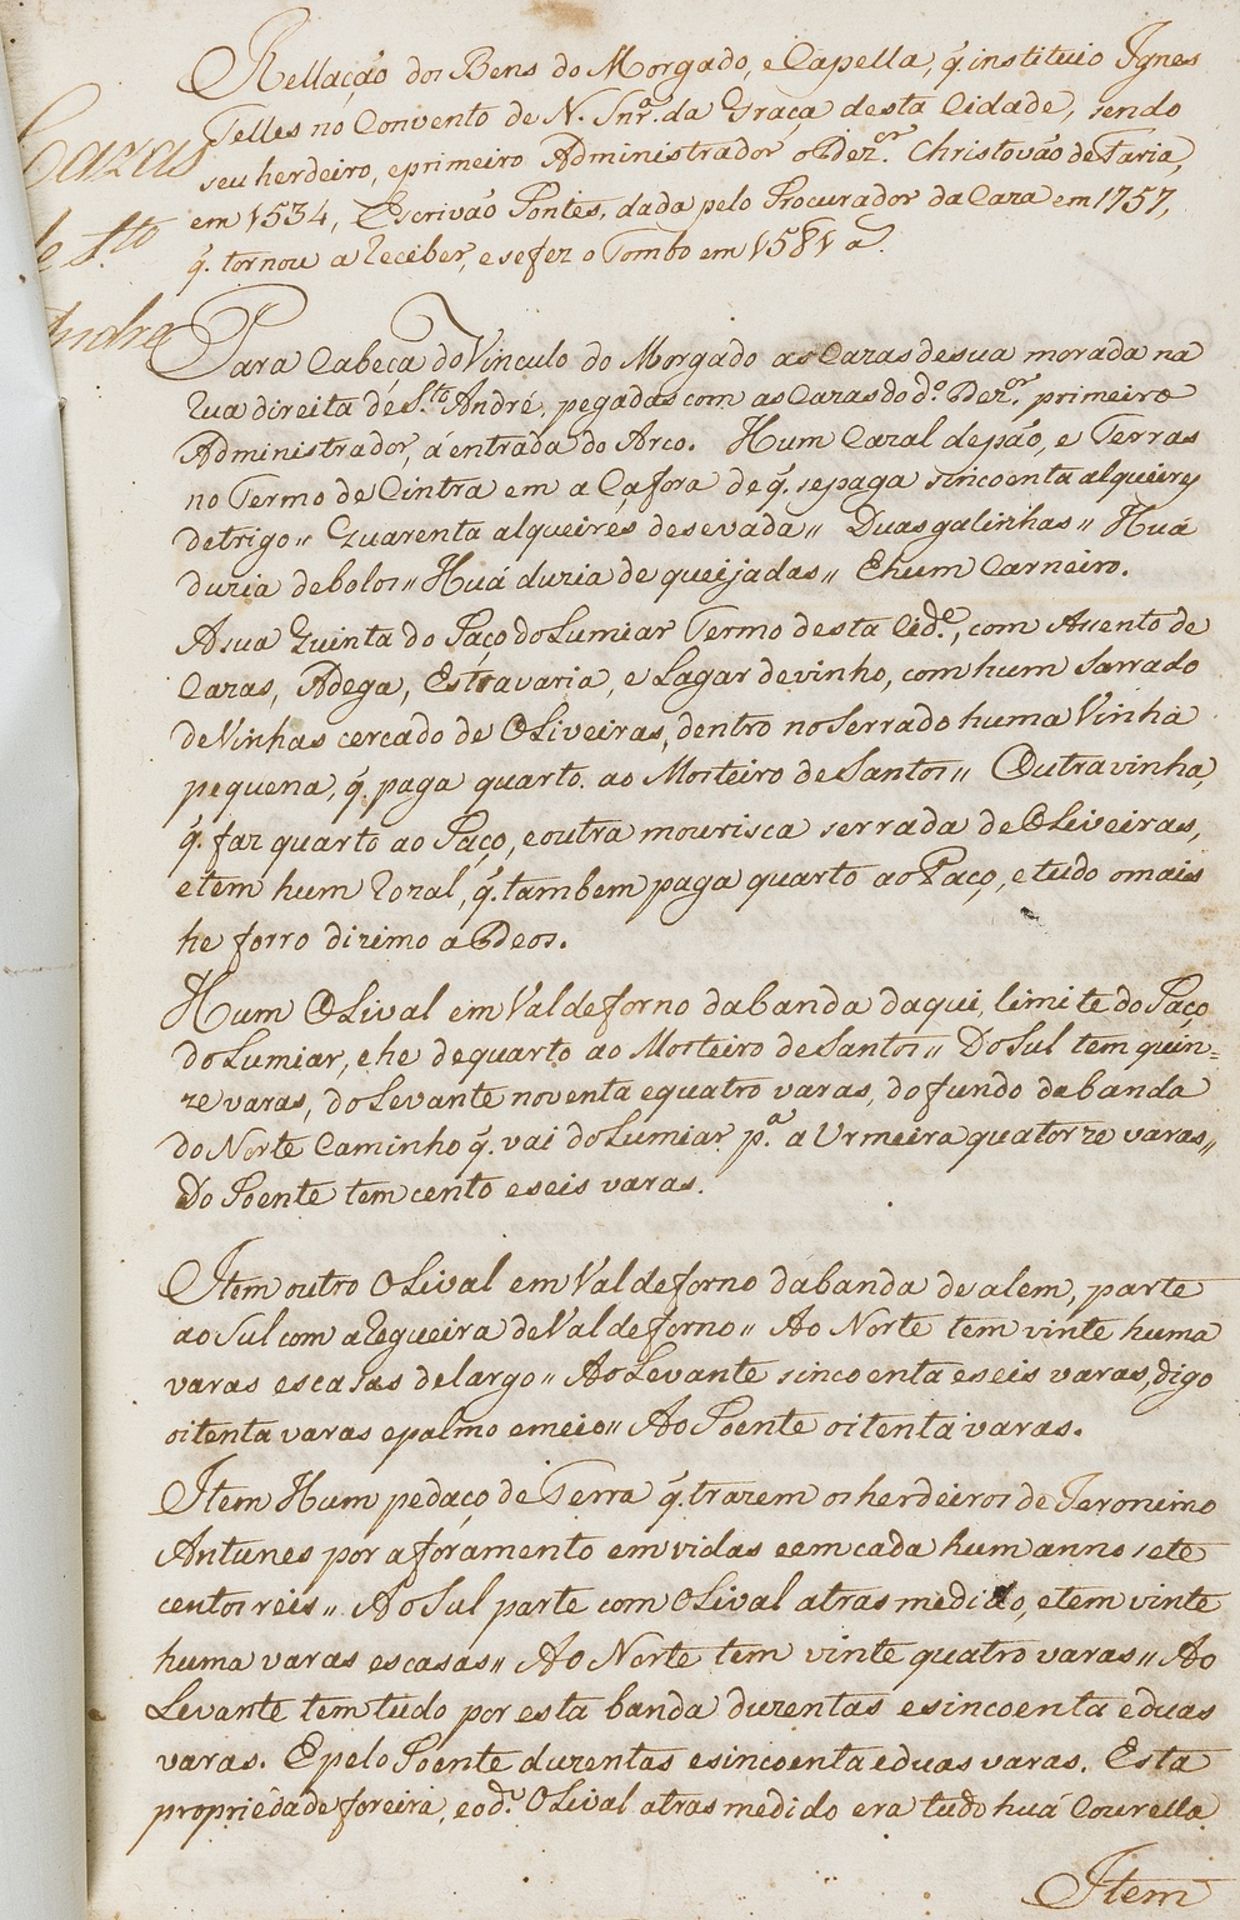 Rellação dos Bens do Morgado, e Capella, q̃. instituio Ignes
Telles no Convento de N. Snr.ª da Graça desta Cidade, sendo
seu herdeiro, e primeiro Administrador o Dez.or Christovão de Faria,
em 1534, Escrivão Pontes, dada pelo Procurador da Caza em 1757,
q̃. tornou a receber, e se fez o Tombo em 1581 a
Cazas
de S.to
Andre
Para Cabeça do Vinculo do Morgado as Cazas de sua morada na
rua direita de S.to André, pegadas com as Cazas do d.o Dez.or primeiro
Administrador, á entrada do Arco. Hum Cazal de pão, e Terras
no Termo de Cintra em a Cafora de q̃. se paga sincoenta alqueires
de trigo,, Quarenta alqueires de sevada,, Duas galinhas,, Huá
duzia de bolos,, Huá duzia de queijadas,, E hum Carneiro.
A sua Quinta do Paço do Lumiar Termo desta Cid.e, com Assento de
Cazas, Adega, Estravaria, e Lagar de vinho, com hum Sarrado
de Vinhas cercado de Oliveiras, dentro no Serrado huma Vinha
pequena, q̃. paga quarto. ao Mosteiro de Santos,, Outra vinha,
q̃. faz quarto ao Paço, e outra mourisca serrada de Oliveiras,
e tem hum rozal, q̃. tambem paga quarto ao Paço, e tudo o mais
he forro dizimo a Deos.
Hum Olival em Val de forno da banda daqui, limite do Paço
do Lumiar, e he de quarto ao Mosteiro de Santos,, Do Sul tem quin=
ze varas, do Levante noventa e quatro varas, do fundo da banda
do Norte Caminho q̃. vai do Lumiar p.ª a Urmeira quatorze varas,,
Do Poente tem cento e seis varas.
Item outro Olival em Val de forno da banda de alem, parte
ao Sul com a regueira de Val de forno,, Ao Norte tem vinte huma
varas escasas de largo,, Ao Levante sincoenta e seis varas, digo
oitenta varas e palmo e meio,, Ao Poente oitenta varas.
Item Hum pedaço de Terra q̃. trazem os herdeiros de Jeronimo
Antunes por aforamento em vidas e em cada hum anno sete
centos reis,, Ao Sul parte com Olival atras medido, e tem vinte
huma varas escasas,, Ao Norte tem vinte quatro varas,, Ao
Levante tem tudo por esta banda duzentas e sincoenta e duas
varas. E pelo Poente duzentas e sincoenta e duas varas. Esta
propriedade foreira, e o d.o Olival atras medido era tudo huá Courella
Item